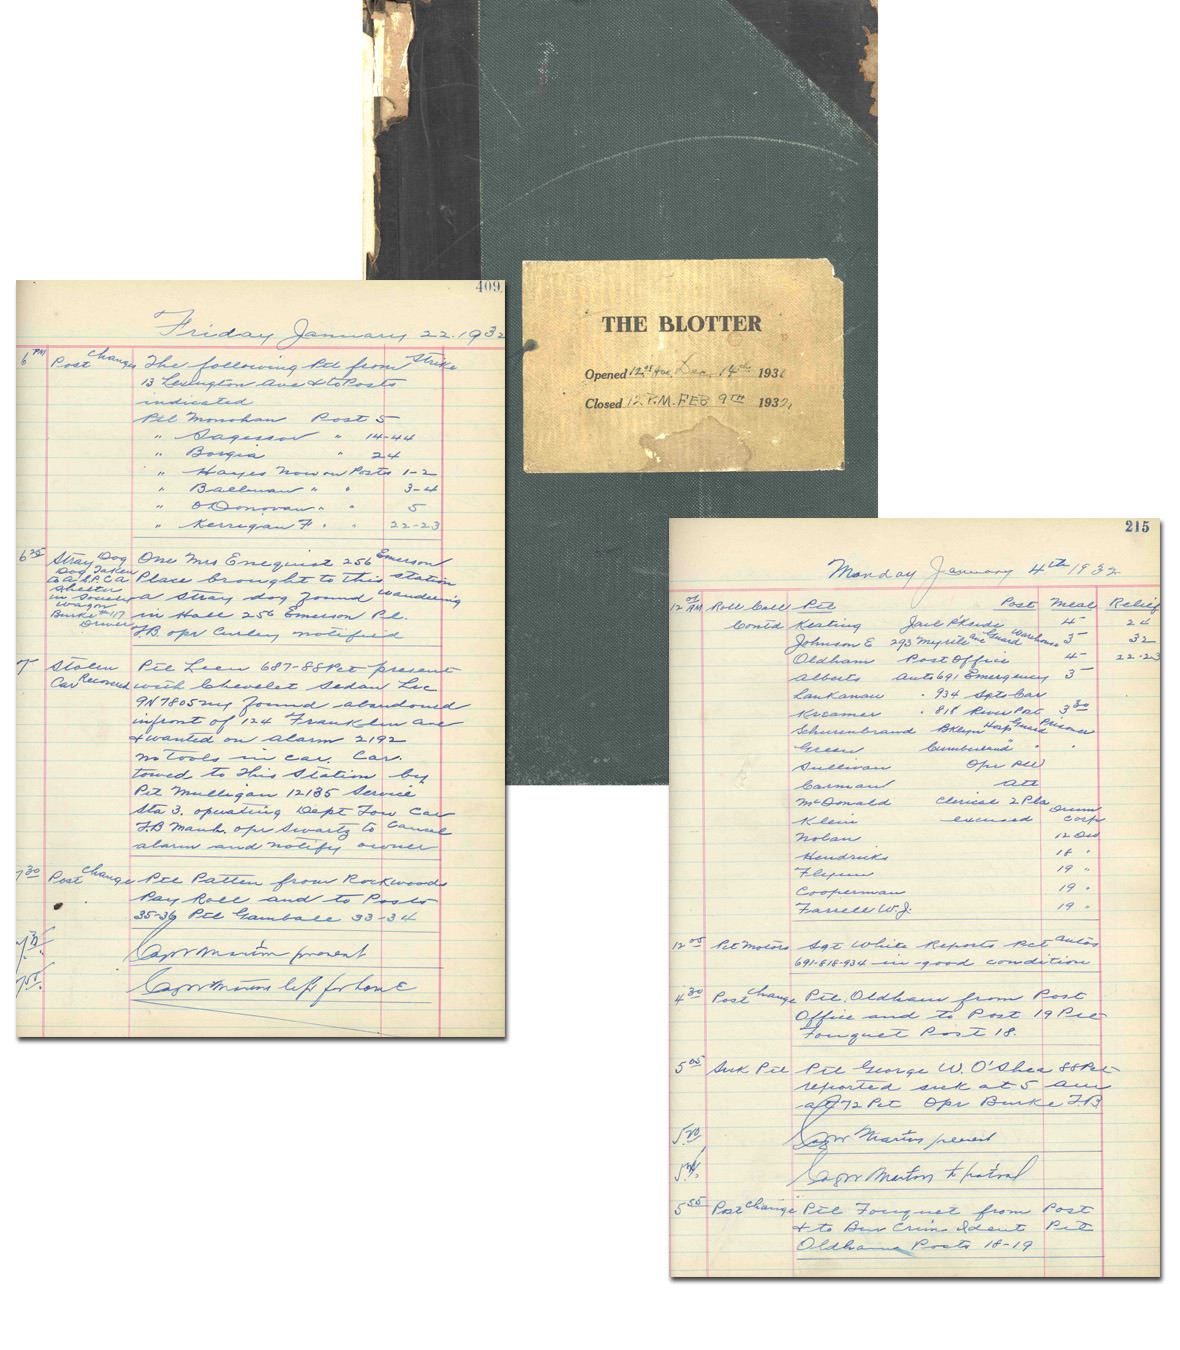 THE BLOTTER
Opened 12 Dec. 14th 193
Closed 12 P.M. FEB 9TH 1932
409
Friday January 22. 1932
6 PM Post Change The following Ptl from Strike
13 Lexington Ave & to Posts
indicated
Ptl Monahan Post 5
" " 14-44
" Borgia " 24
" Hayes now on Posts 1-2
" Ballman " " 3-4
" O'Donovan " " 5
" Kerrigan F " " 22-23
6 35 Stray Dog One Mrs Enequist 256 Emerson
Dog Taken
to A.S.P.C.A Place brought to this station
Shelter
in Society a stray dog found wandering
wagon
Burke #117 in Hall 256 Emerson Pl.
Driver
T.B. opr Curley notified
7 Stolen Ptl Leen 687-88 Pct present
Car Recovered with Chevelet Sedan Lic
9N7805 ny found abandoned
infront of 124 Franklin ave
& wanted on alarm 2192
no tools in car. Car.
towed to this station by
Ptl Mulligan 12135 Service
Sta 3. operating Dept Tow Car
T.B Manh. opr Swartz to Cancel
alarm and notify owner
7 30 Post Change Ptl Patten from Rockwoods
Pay Roll and to Posts
35-36 Ptl Gamball 33-34
Capt present
7 55 Capt left for home
215
Monday January 4th 1932
12 01 AM Roll Call Ptl Post Meal Relief
Contd Keating Jail P'Kside 4 24
Johnson E 293 Myrtle ave Guard Warehouse 3 32
Oldham Post Office 4 22-23
Alberts Auto 691 Emergency 3
Lankanau " 934 Sgts Car
Kreamer " 818 River Pat 3 30
Schurenbrand Bklyn Hosp Guard Prisoner
Green Cumberland " "
Sullivan Opr
Carman Att
McDonald Clerical 2 Pla
Klein excused Drum Corp
Nolan 12
Hendricks 18 "
Flynn 19 "
Cooperman 19 "
Farrell W.J. 19 "
12 05 Pct Motors Sgt White Reports Pct autos
691-818-934 in good condition
4 30 Post Change Ptl. Oldham from Post
Office and to Post 19 Ptl
Fouquet Post 18.
5 05 Sick Ptl Ptl George W. O'Shea 88 Pct
reported sick at 5 Am
at 72 Pct Opr Burke T.B
5 20 Capt present
Capt to patrol
5 55 Post Change Ptl Fouquet from Post
& to Bur Crim Ident Ptl
Oldham Posts 18-19